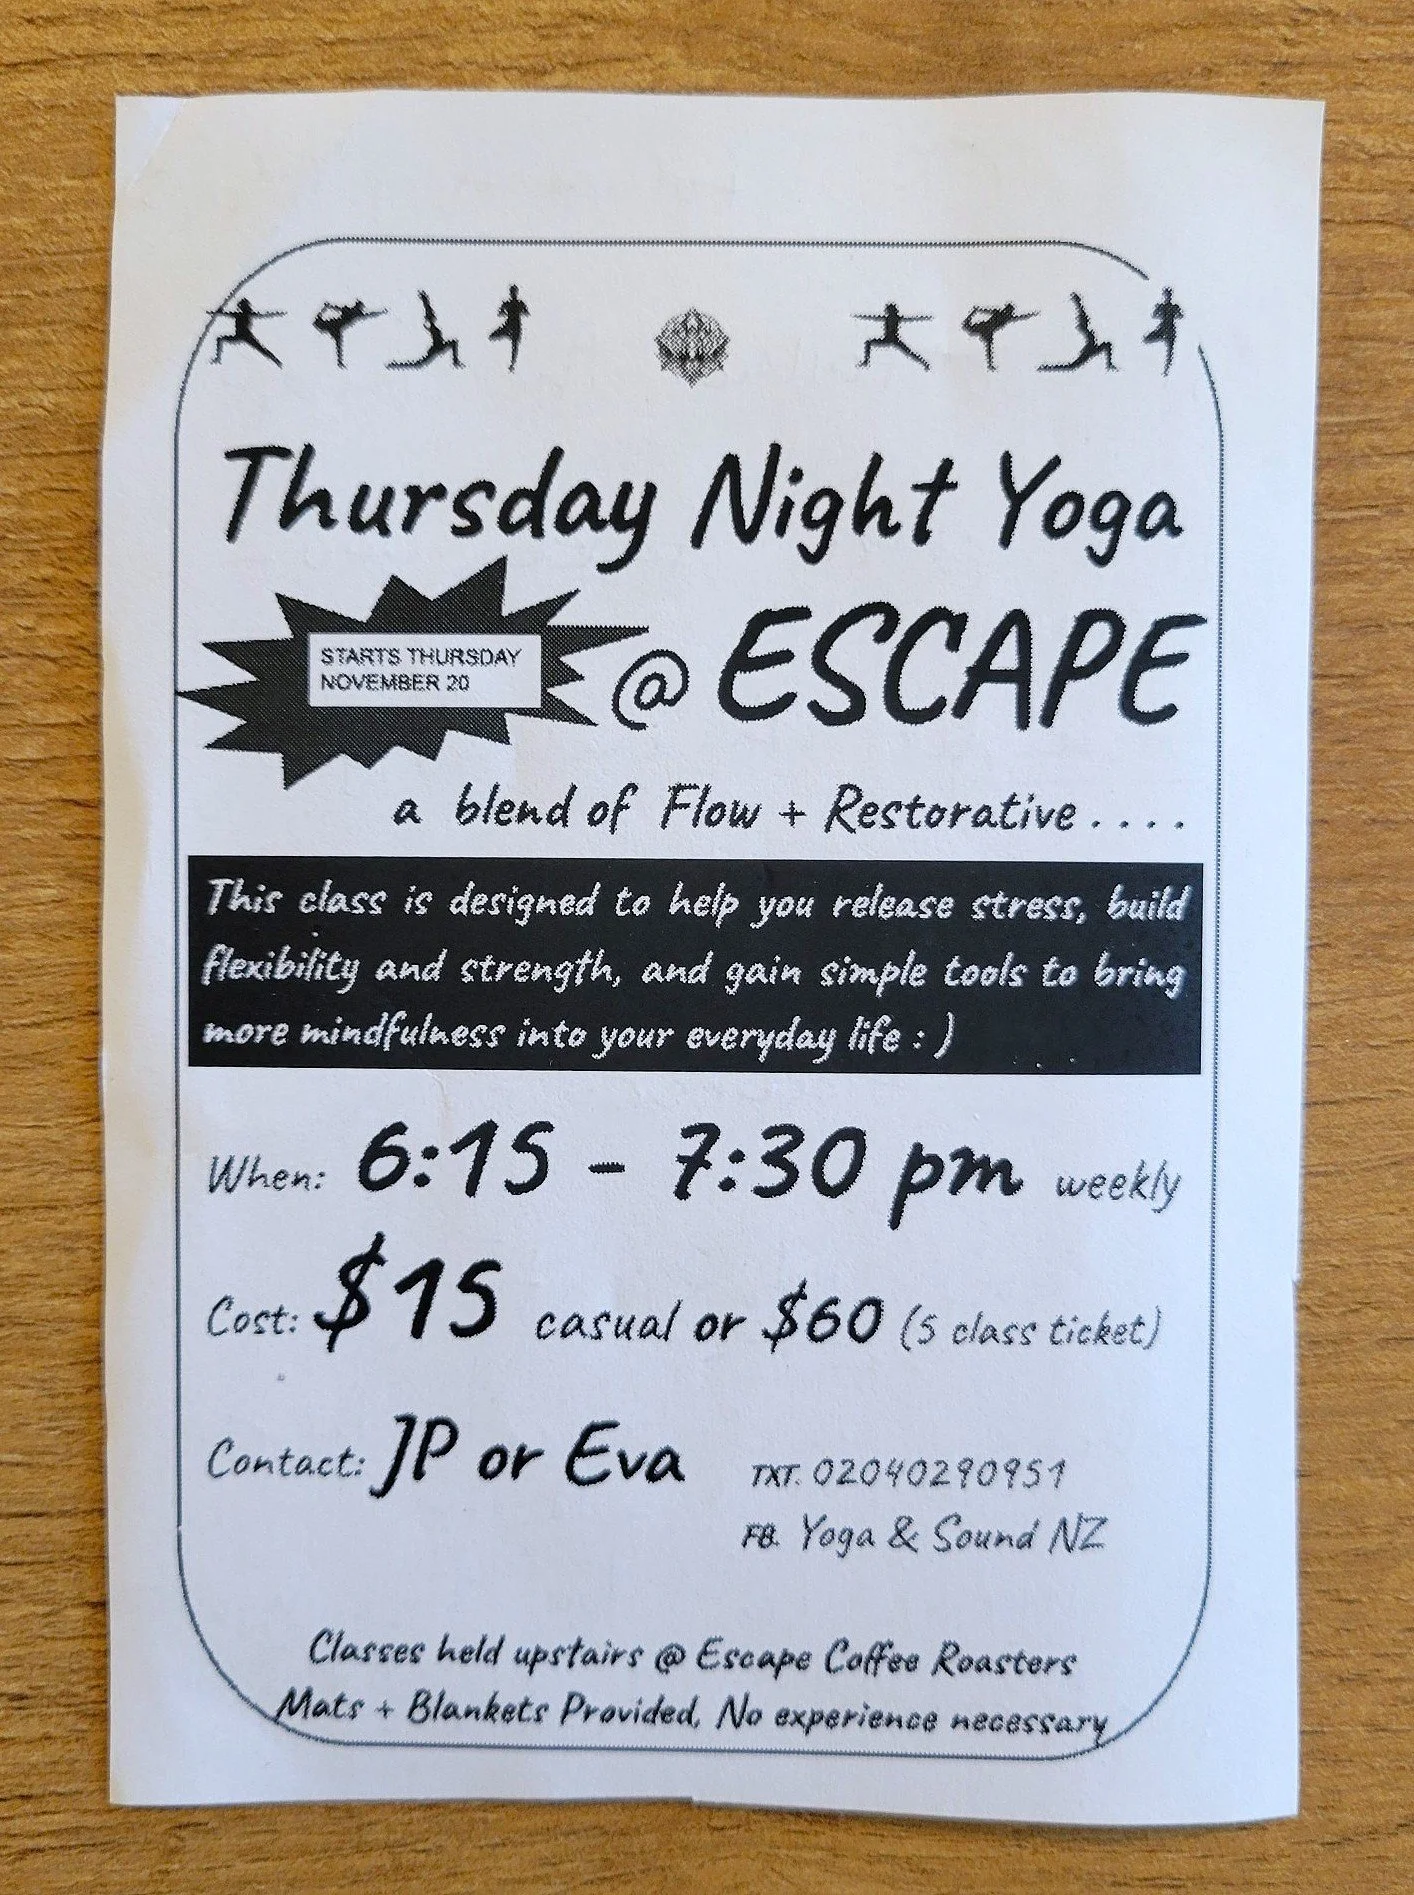 Thursday Night Yoga
STARTS THURSDAY
NOVEMBER 20
@ ESCAPE
a blend of Flow + Restorative . . . .
This class is designed to help you release stress, build
flexibility and strength, and gain simple tools to bring
more mindfulness into your everyday life : )
When: 6:15 - 7:30 pm weekly
Cost: $15 casual or $60 (5 class ticket)
Contact: JP or Eva TXT. 02040290951
FB. Yoga & Sound NZ
Classes held upstairs @ Escape Coffee Roasters
Mats + Blankets Provided, No experience necessary